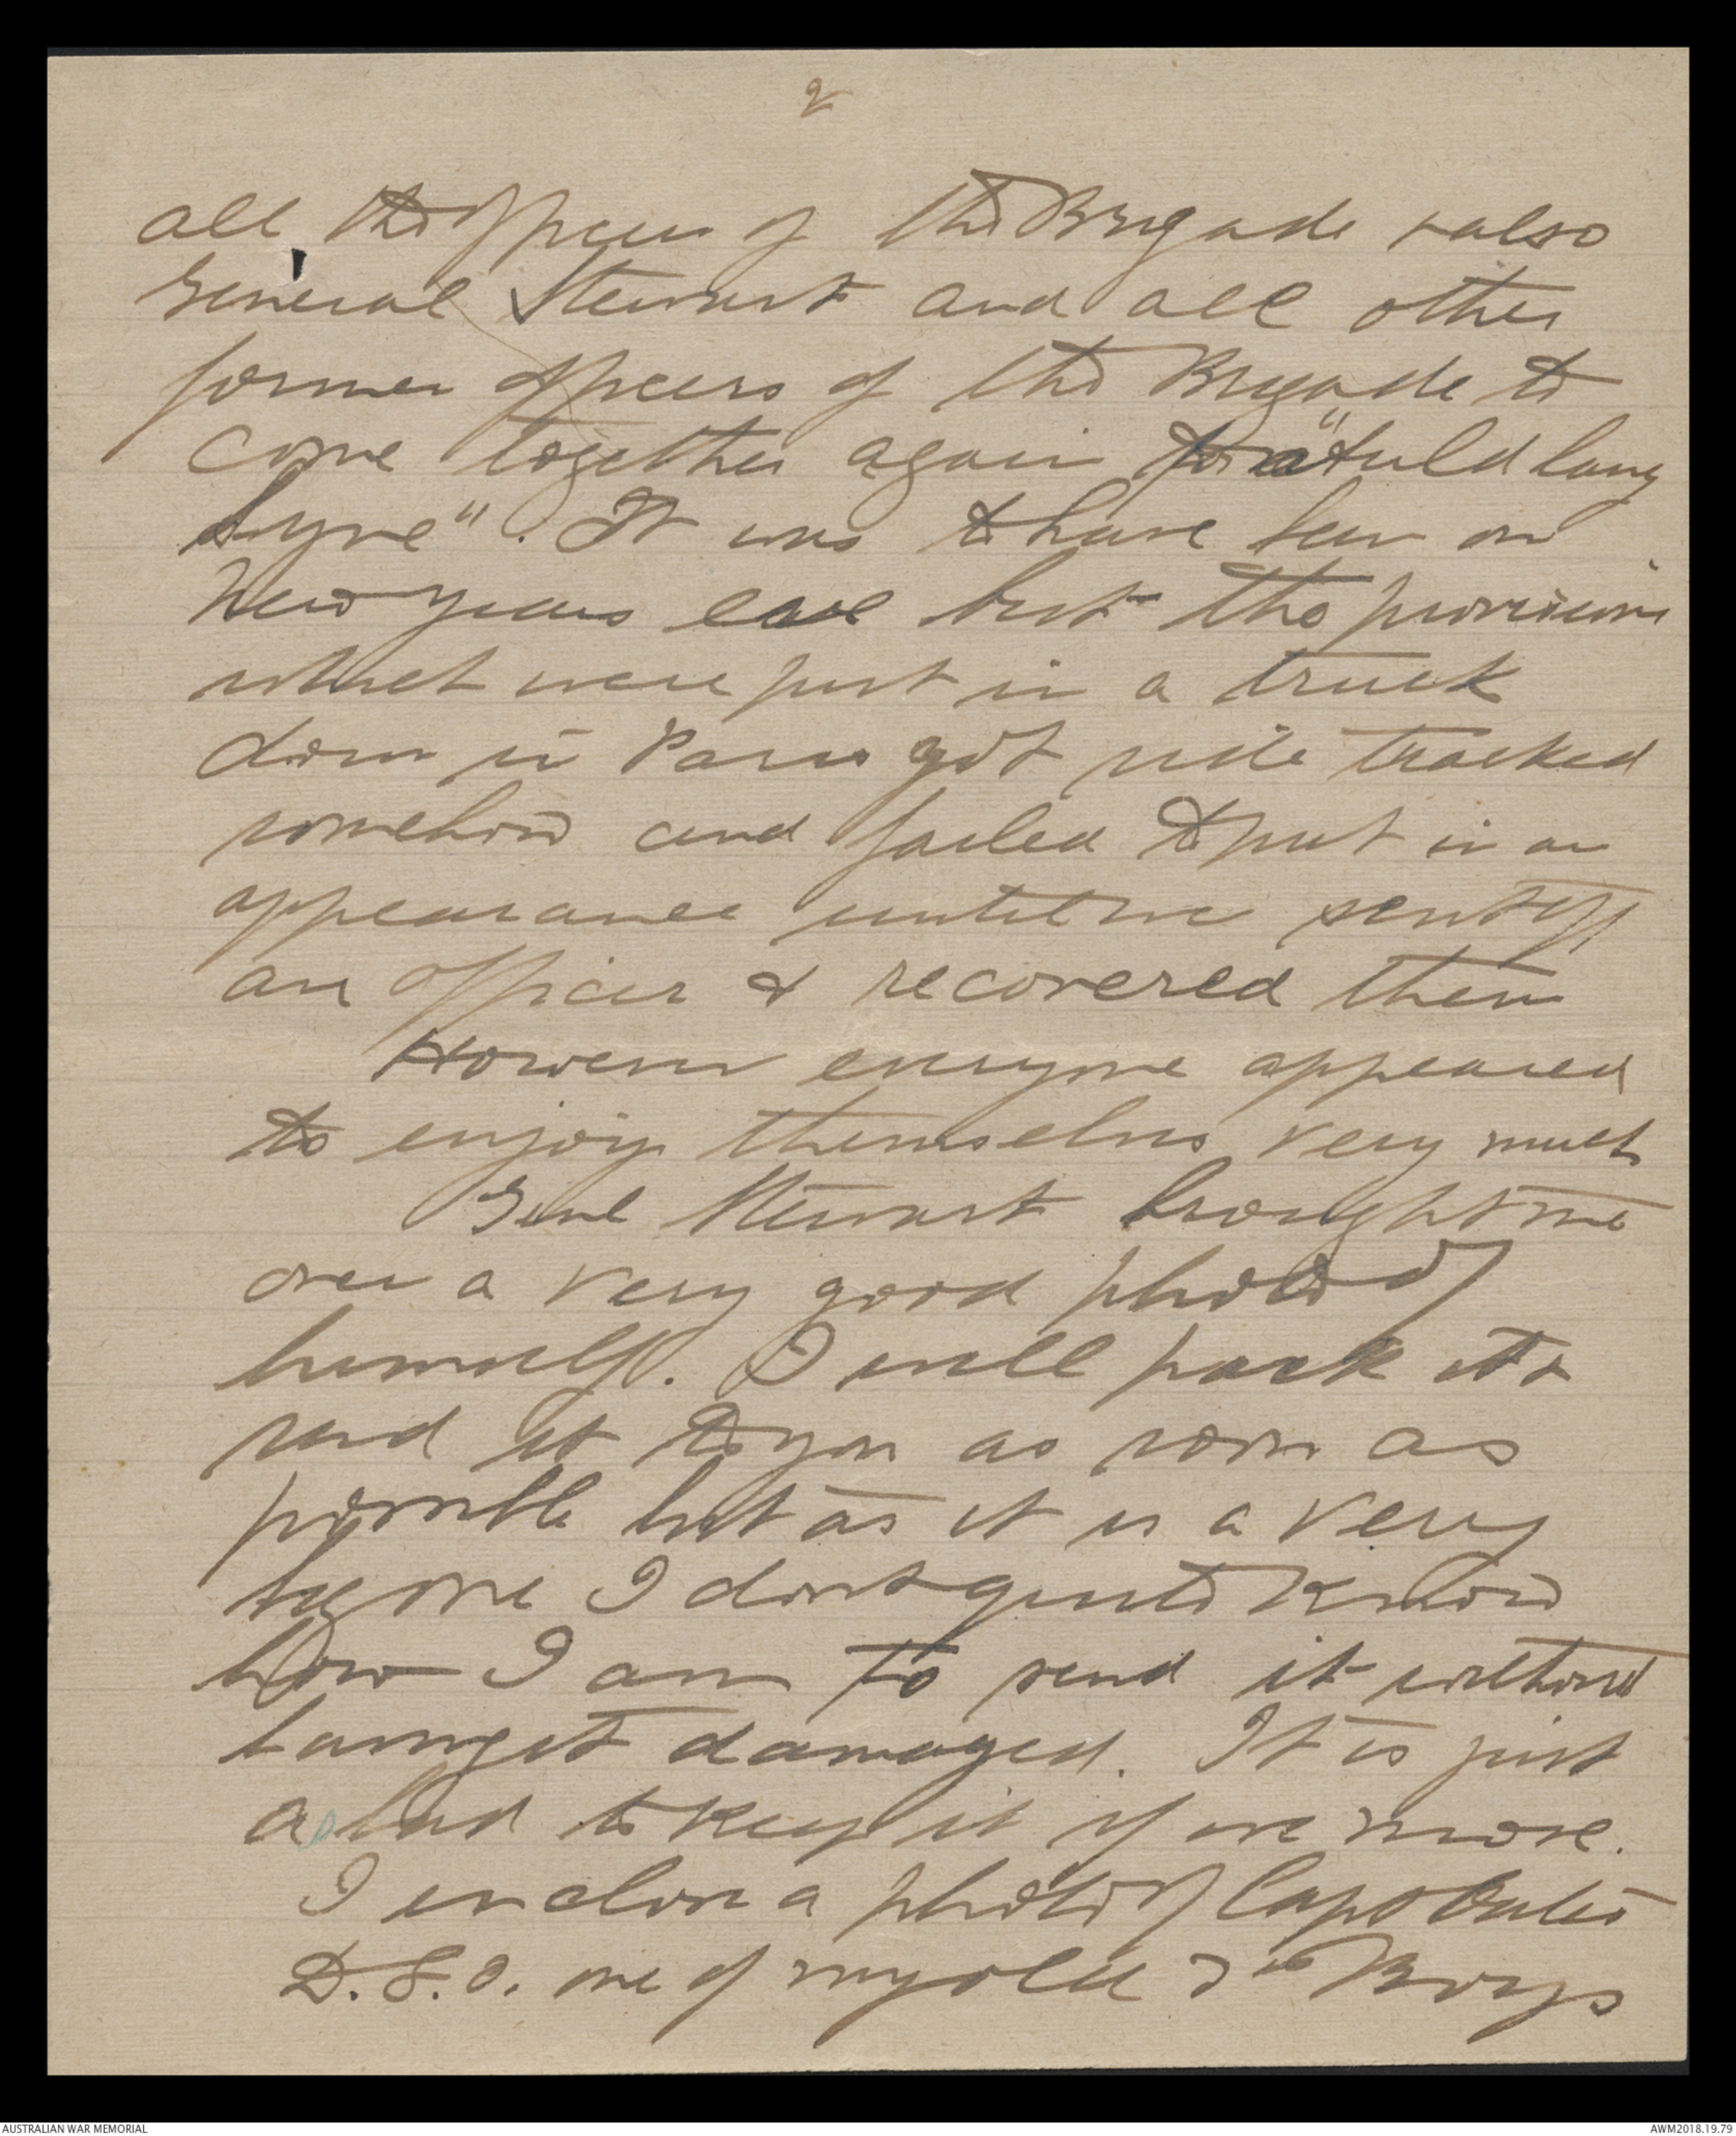 2
all the officers of the Brigade & also
General Stewart and all other
former officers of the Brigade to
come together again for "auld lang
syne". It was to have been on
New Years eve but the provisions
which were put in a truck
down in Paris got side tracked
somehow and failed to put in an
appearance until we sent off
an officer & recovered them
However everyone appeared
to enjoy themselves very much
Genl Stewart brought me
over a very good photo of
himself. I will pack it &
send it to you as soon as
possible but as it is a very
big one I dont quite know
how I am to send it without
having it damaged. It is just
as bad to keep it if we move.
I enclose a photo of Capt
D.S.O. one of my old Boys
AUSTRALIAN WAR MEMORIAL
AWM2018.19.79